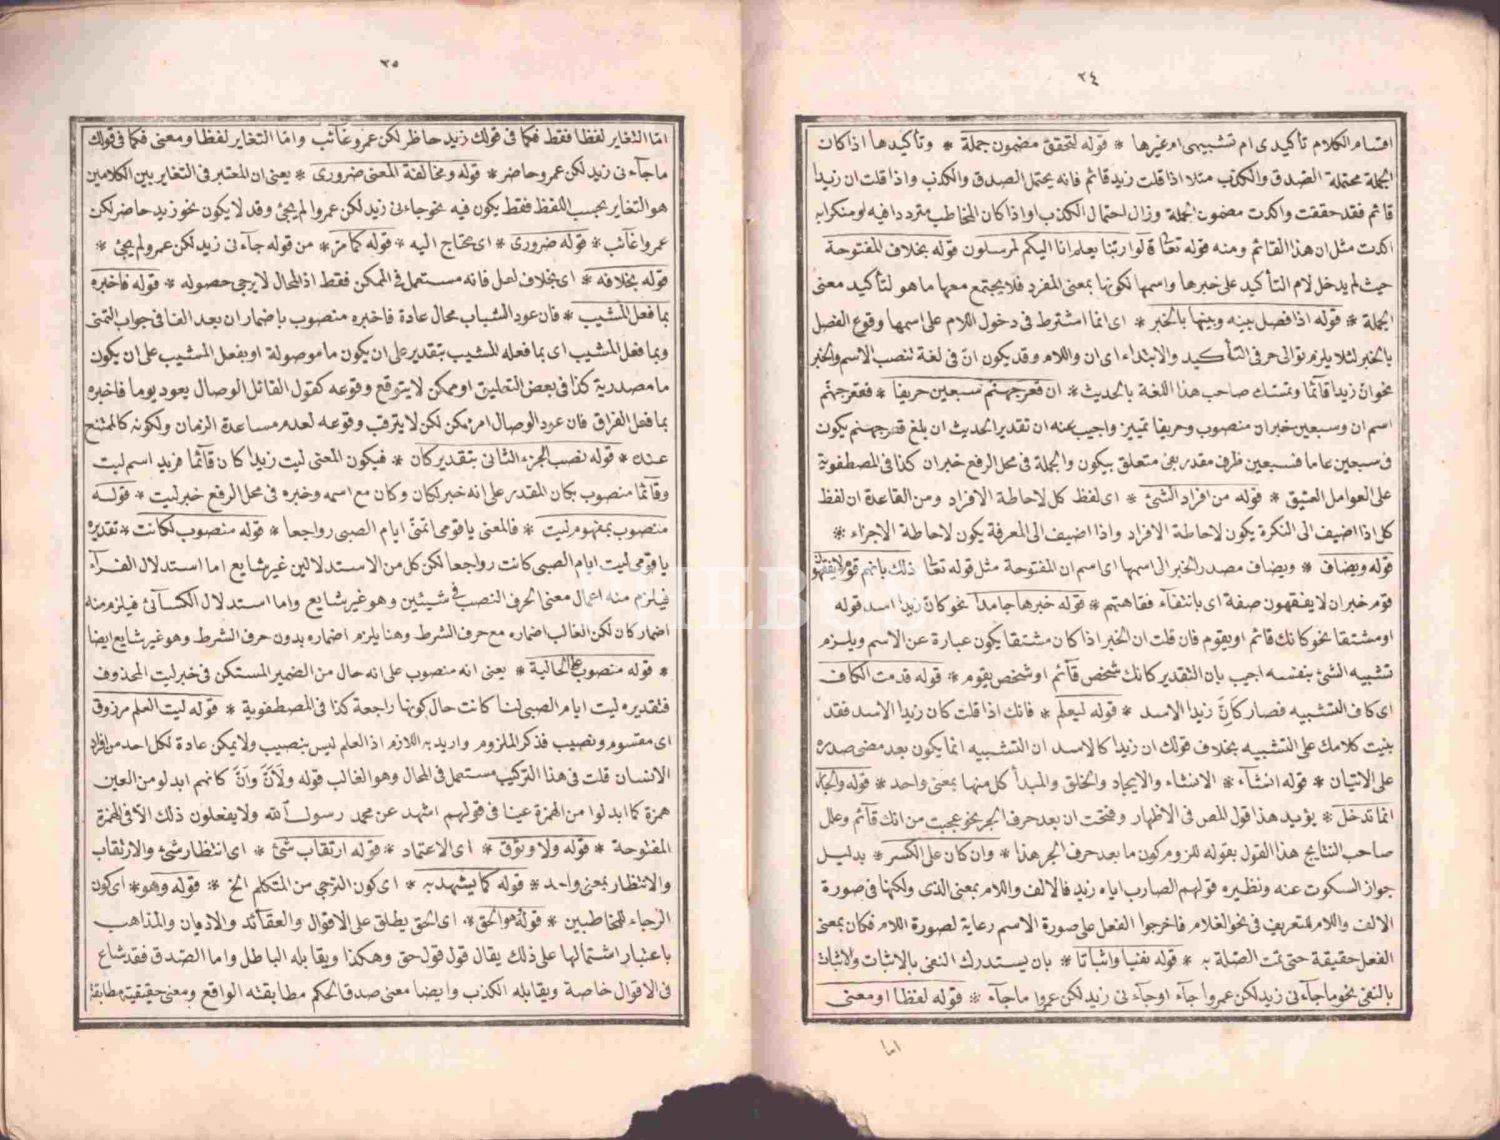 ٢٤
اقسام الكلام تأكيدى ام تشبيهى ام غيرها * قوله لتحقق مضمون جملة * وتأكيدها اذا كانت
الجملة محتملة الصدق والكذب مثلا اذا قلت زيد قائم فانه يحتمل الصدق والكذب واذا قلت ان زيدا
قائم فقد حققت واكدت مضمون الجملة وزال احتمال الكذب او اذا كان المخاطب مترددا فيه او منكرا به
اكدت مثل ان هذا القائم ومنه قوله تعالى قالوا ربنا يعلم انا اليكم لمرسلون قوله بخلاف المفتوحة
حيث لم يدخل لام التأكيد على خبرها واسمها لكونها بمعنى المفرد فلا يجتمع معها ما هو لتأكيد معنى
الجملة * قوله اذا فصل بينه وبينها بالخبر * اى انما اشترط فى دخول اللام على اسمها وقوع الفصل
بالخبر لئلا يلزم توالى حرفى التأكيد والابتداء اى ان واللام وقد يكون ان فى لغة تنصب الاسم والخبر
نحو ان زيدا قائما وتمسك صاحب هذا اللغة بالحديث * ان قعر جهنم سبعين حريفا * فقعر جهنم
اسم ان وسبعين خبر ان منصوب وحريفا تمييز واجيب عنه ان تقدير الحديث ان بلغ قعر جهنم يكون
فى سبعين عاما فسبعين ظرف مقدر بفى متعلق بيكون والجملة فى محل الرفع خبر ان كذا فى المصطفوية
على العوامل العتيق * قوله من افراد الشئ * اى لفظ كل لاحاطة الافراد ومن القاعدة ان لفظ
كل اذا اضيف الى النكرة يكون لاحاطة الافراد واذا اضيف الى المعرفة يكون لاحاطة الاجزاء *
قوله ويضاف * ويضاف مصدر الخبر الى اسمها اى اسم ان المفتوحة مثل قوله تعالى ذلك بانهم قوم لا يفقهون
قوم خبر ان لا يفقهون صفة اى بانتفاء فقاهتهم * قوله خبرها جامدا نحو كان زيدا اسد قوله
او مشتقا نحو كانك قائم او يقوم فان قلت ان الخبر اذا كان مشتقا يكون عبارة عن الاسم ويلزم
تشبيه الشئ بنفسه اجيب بان التقدير كانك شخص قائم او شخص يقوم * قوله قدمت الكاف
اى كاف التشبيه فصار كان زيدا الاسد * قوله ليعلم * فانك اذا قلت كان زيدا الاسد فقد
بنيت كلامك على التشبيه بخلاف قولك ان زيدا كالاسد ان التشبيه انما يكون بعد مضى صدره
على الاتيان * قوله انشاء * الانشاء والايجاد والخلق والمبدأ كل منها بمعنى واحد * قوله والجار
انما تدخل * يؤيد هذا قول المص فى الاظهار وفتحت ان بعد حرف الجر نحو عجبت من انك قائم وعلل
صاحب النتايج هذا القول بقوله للزوم كون ما بعد حرف الجر هذا * وان كان على الكسر * بدليل
جواز السكوت عنه ونظيره قولهم الضارب اباه زيد فالالف واللام بمعنى الذى ولكنها فى صورة
الالف واللام للتعريف فى نحو الغلام فاخرجوا الفعل على صورة الاسم رعاية لصورة اللام فكان بمعنى
الفعل حقيقة حتى تمت الصلة به * قوله نفيا واثباتا * بان يستدرك النفى بالاثبات والاثبات
بالنفى نحو ما جاءنى زيد لكن عمروا جاء او جاءنى زيد لكن عمروا ما جاء * قوله لفظا او معنى
اما
٢٥
اما التغاير لفظا فقط فكما فى قولك زيد حاظر لكن عمرو غائب واما التغاير لفظا ومعنى فكما فى قولك
ما جاءنى زيد لكن عمرو حاضر * قوله ومخالفة المعنى ضرورى * يعنى ان المعتبر فى التغاير بين الكلامين
هو التغاير بحسب اللفظ فقط يكون فيه نحو جاءنى زيد لكن عمروا لم يجئ وقد لا يكون نحو زيد حاضر لكن
عمروا غائب * قوله ضرورى * اى محتاج اليه * قوله كما مر * من قوله جاءنى زيد لكن عمرو لم يجئ *
قوله بخلافه * اى بخلاف لعل فانه مستعمل فى الممكن فقط اذ المحال لا يرجى حصوله * قوله فاخبره
بما فعل المشيب * فان عود الشباب محال عادة فاخبره منصوب باضمار ان بعد الفا فى جواب التمنى
وبما فعل المشيب اى بما فعله المشيب بتقدير على ان يكون ما موصولة او بفعل المشيب على ان يكون
ما مصدرية كذا فى بعض التعليق او ممكن لا يتوقع وقوعه كقول القائل الوصال يعود يوما فاخبره
بما فعل الفراق فان عود الوصال امر ممكن لكن لا يترقب وقوعه لعدم مساعدة الزمان ولكونه كالممتنع
عنده * قوله نصب الجزء الثانى بتقدير كان * فيكون المعنى ليت زيدا كان قائما فزيد اسم ليت
وقائما منصوب بكان المقدر على انه خبر لكان وكان مع اسمه وخبره فى محل الرفع خبر ليت * قوله
منصوب بمفهوم ليت * فالمعنى يا قومى اتمنى ايام الصبى رواجعا * قوله منصوب لكانت * تقديره
يا قومى ليت ايام الصبى كانت رواجعا لكن كل من الاستدلالين غير شايع اما استدلال الفراء
فيلزم منه اعمال معنى الحرف النصب فى شيئين وهو غير شايع واما استدلال الكسائى فيلزم منه
اضمار كان لكن الغالب اضماره مع حرف الشرط وهنا يلزم اضماره بدون حرف الشرط وهو غير شايع ايضا
* قوله منصوب على الحالية * يعنى انه منصوب على انه حال من الضمير المستكن فى خبر ليت المحذوف
فتقديره ليت ايام الصبى لنا كانت حال كونها راجعة كذا فى المصطفوية * قوله ليت العلم مرزوق
اى مقسوم ونصيب فذكر الملزوم واريد به اللازم اذ العلم ليس بنصيب ولا يمكن عادة لكل احد من افراد
الانسان قلت فى هذا التركيب مستعمل فى المحال وهو الغالب قوله ولأن وأن كانهم ابدلو من العين
همزة كما ابدلوا من الهمزة عينا فى قولهم اشهد عن محمد رسول الله ولا يفعلون ذلك الا فى الهمزة
المفتوحة * قوله ولا وثوق * اى الاعتماد * قوله ارتقاب شئ * اى انتظار شئ والارتقاب
والانتظار بمعنى واحد * قوله كما يشهد به * اى كون الترجى من المتكلم الخ * قوله وهو * اى كون
الرجاء للمخاطبين * قوله هو الحق * اى الحق يطلق على الاقوال والعقائد والاديان والمذاهب
باعتبار اشتمالها على ذلك يقال قول قول حق وهكذا ويقابله الباطل واما الصدق فقد شاع
فى الاقوال خاصة ويقابله الكذب وايضا معنى صدق الحكم مطابقته الواقع ومعنى حقيقيته مطابقة